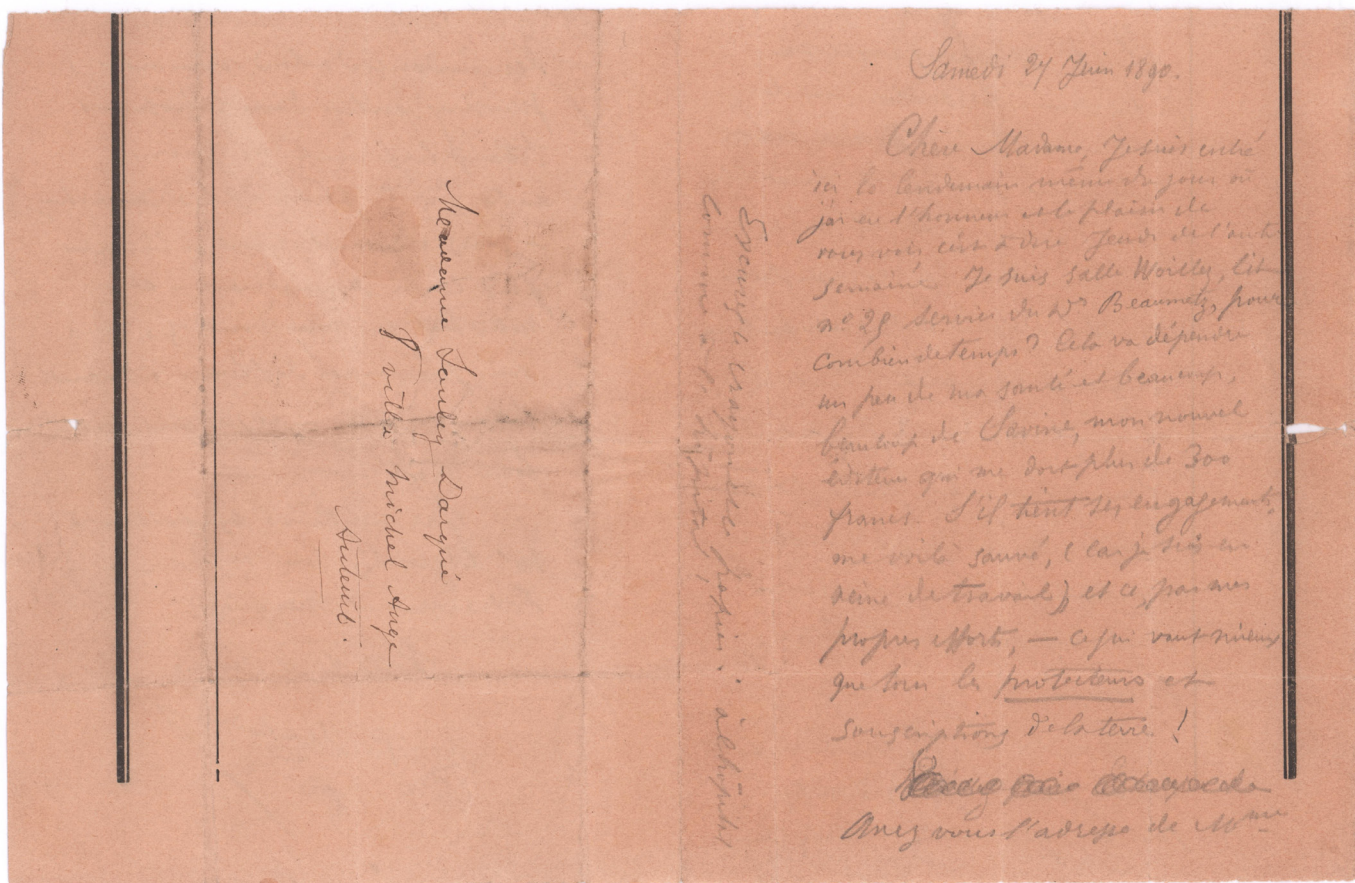 Samedi 27 Juin 1890.
Chère Madame, Je suis entré
ici le lendemain même du jour où
j'ai eu l'honneur et le plaisir de
vous voir, c'est à dire Jeudi de l'autre
semaine. Je suis salle Woillez, lit
n° 29 service du Dr Beaumetz, pour
combien de temps? Cela va dépendre
un peu de ma santé et beaucoup,
beaucoup de Savine, mon nouvel
éditeur qui me doit plus de 300
francs. S'il tient ses engagements,
me voilà sauvé, (car je suis en
veine de travail) et ce, par mes
propres efforts, — ce qui vaut mieux
que tous les protecteurs et
souscriptions de la terre!
Avez vous l'adresse de Mme
Excusez le crayon et le papier: à l'hôpital
comme à l'hôpital,
Madame Darqué
8 villa Michel Ange
Auteuil.